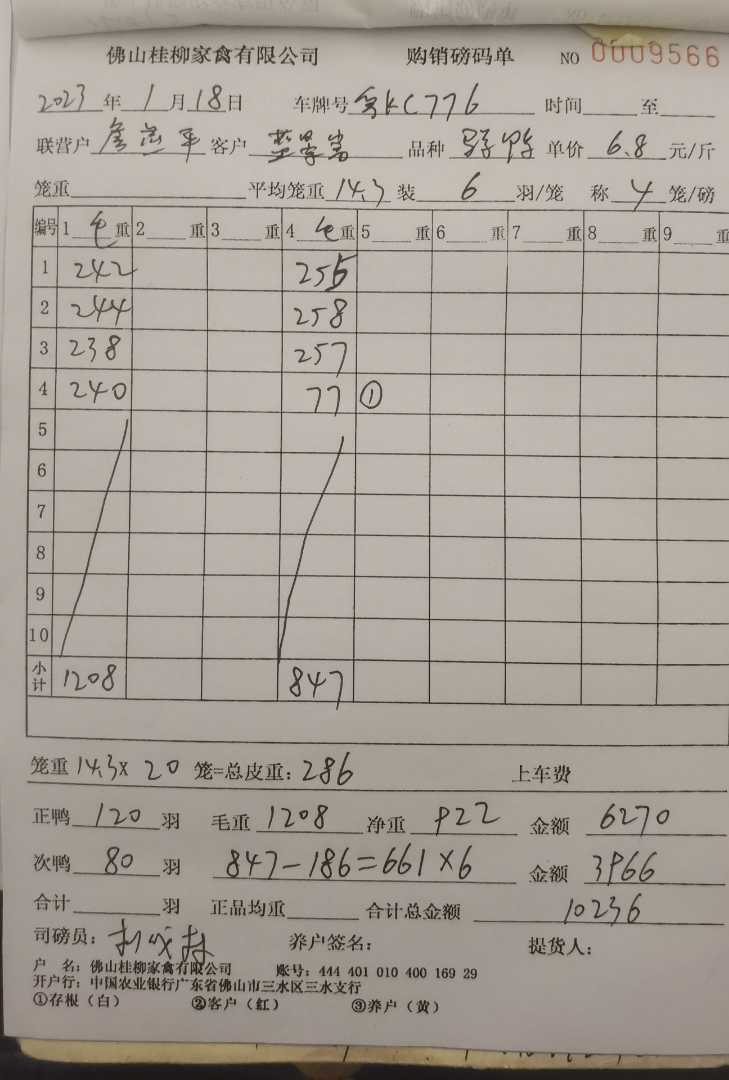 佛山桂柳家禽有限公司 购销磅码单 NO 0009566
2023年1月18日 车牌号 KC776 时间 至
联营户 客户 品种 单价 6.8 元/斤
笼重 平均笼重 14.3 装 6 羽/笼 称 4 笼/磅
编号 1 毛 重 2 重 3 重 4 毛 重 5 重 6 重 7 重 8 重 9 重
1 242 255
2 244 258
3 238 257
4 240 77 ①
5
6
7
8
9
10
小计 1208 847
笼重 14.3× 20 笼=总皮重: 286 上车费
正鸭 120 羽 毛重 1208 净重 922 金额 6270
次鸭 80 羽 847-186=661×6 金额 3966
合计 羽 正品均重 合计总金额 10236
司磅员: 养户签名: 提货人:
户 名: 佛山桂柳家禽有限公司 账号: 444 401 010 400 169 29
开户行: 中国农业银行广东省佛山市三水区三水支行
①存根（白） ②客户（红） ③养户（黄）